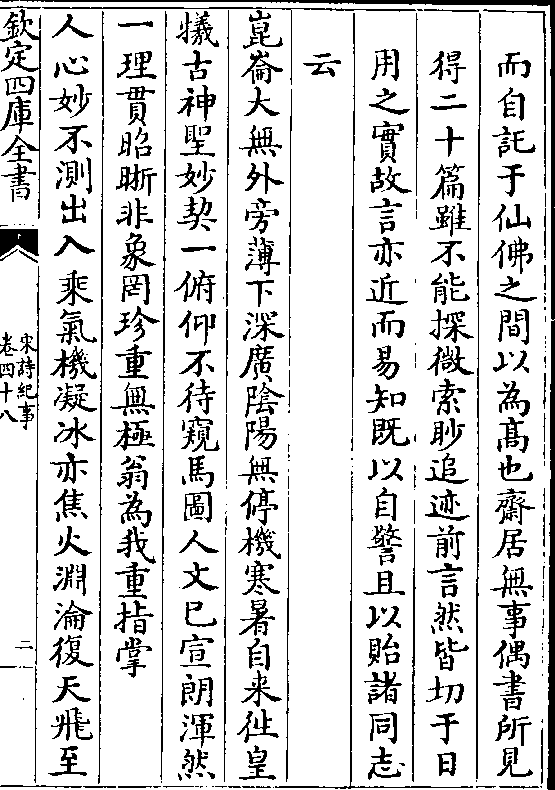 而自託于仙佛之間以為髙也齋居無事偶書所見
得二十篇雖不能探微索眇追迹前言然皆切于日
用之實故言亦近而易知既以自警且以貽諸同志
云
崑崙大無外旁薄下深廣陰陽無停機寒暑自来徃皇
犧古神聖妙契一俯仰不待窺馬圖人文已宣朗渾然
一理貫昭晰非象罔珍重無極翁為我重指掌
人心妙不測出入乘氣機凝冰亦焦火淵淪復天飛至
欽定四庫全書
宋詩紀事
卷四十八
二